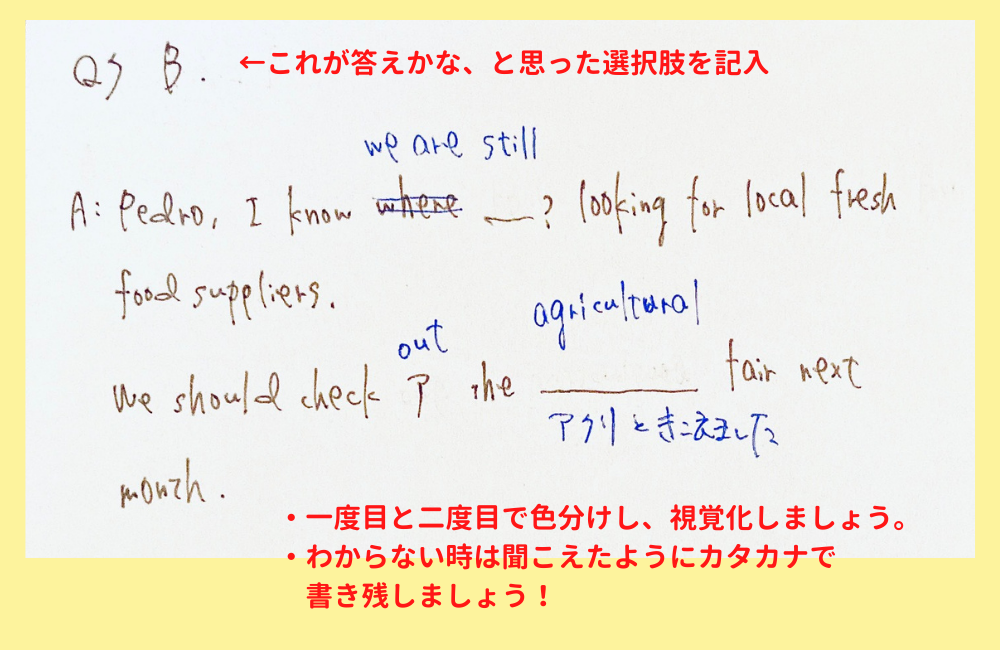 Q5 B. ←これが答えかな、と思った選択肢を記入
we are still
A: Pedro, I know where __? looking for local fresh
food suppliers.
out agricultural
We should check ア the ______ fair next
アグリときこえました
month.
・一度目と二度目で色分けし、視覚化しましょう。
・わからない時は聞こえたようにカタカナで
書き残しましょう！